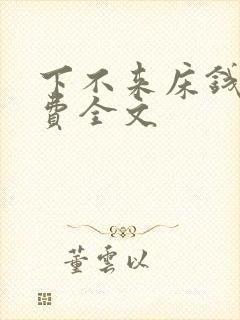 下不来床钱
费全文
董云以